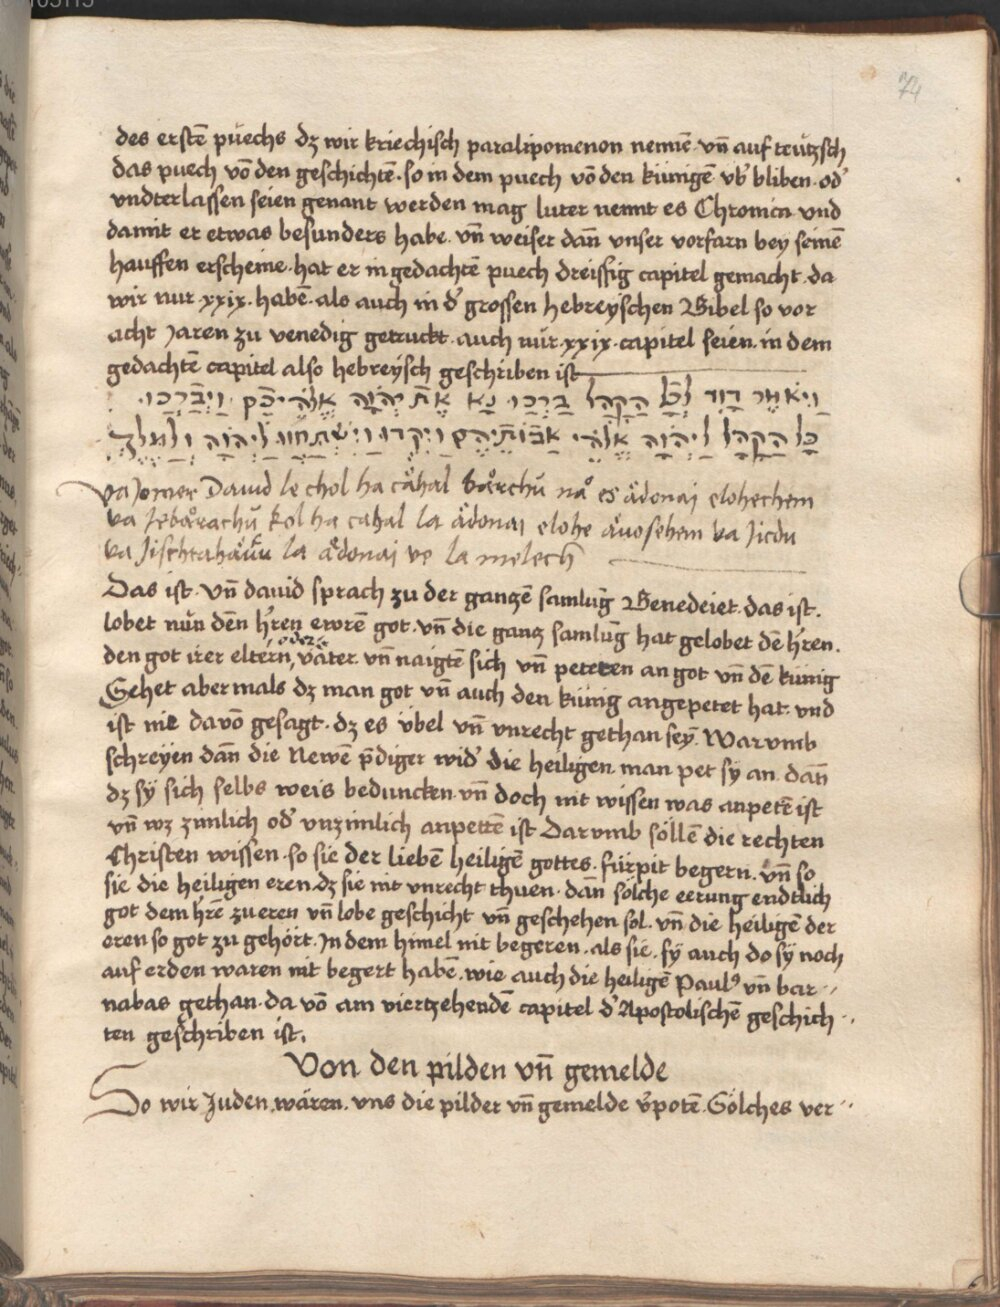 74
des erstē püechs dz wir kriechisch paralipomenon nemiē. vn̄ auf teützsch
das puech vō den geschichtē. so in dem puech vō den künigē vb̓ bliben. od̓
vndterlassen seien genant werden mag luter nennt es Chronica vnd
damit er etwas besunders habe. vn̄ weiser dan̄ vnser vorfarn bey seinē
hauffen erscheine. hat er in gedachtē puech dreissig capitel gemacht. da
wir nur .xxix. habē. als auch in d̓ grossen hebreyschen Bibel so vor
acht Jaren zu venedig getruckt. auch nür .xxix. capitel seien. in dem
gedachtē capitel also hebreysch geschriben ist
וַיֹּאמֶר דָוִד לְכָל הַקָהָל בָּרְכוּ נָא אֶת יְהֹוָה אֱלֹהֵיכֶם וַיְבָרְכוּ.
כָל הַקָהָל לַיהֹוָה אֱלֹהֵי אֲבוֹתֵיהֶם וַיִקְדוּ וַיִשְׁתַחֲווּ לַיהֹוָה וְלַמֶלֶךְ
va Jomer Dauid le chol ha cähal bårchū nå es ädonai elohechem
va Jebårachū kol ha cahal la ädonai elohe åuosehem va Jicdu
va Jischtahåūu la ädonai ve la melech
Das ist. vn̄ dauid sprach zu der ganzē samlūg Benedeiet. das ist.
lobet nün dēn h̓ren ewrē got. vn̄ die ganz samlūg hat gelobet dē h̓ren.
den got irer eltern, oder väter. vn̄ naigtē sich vn̄ peteten an got vn̄ dē künig
Sehet abermals dz man got vn̄ auch den künig angepetet hat. vnd
ist nit davō gesagt. dz es übel vn̄ vnrecht gethan seÿ. Warvmb
schreyen dan̄ die Newē p̄diger wid̓ die heiligen. man pet sy an. dan̄
dz sÿ sich selbs weis beduncken. vn̄ doch nit wissen was anpetē ist
vn̄ wz zimlich od̓ vnzimlich anpettē ist Darvmb söllē die rechten
Christen wissen. so sie der liebē heiligē gottes. fürpit begern. vn̄ so
sie die heiligen eren. dz sie nit vnrecht thuen. dan̄ solche eerūng endtlich
got dem h̓rē zu eren vn̄ lobe geschicht vn̄ geschehen sol. vn̄ die heiligē der
eren so got zu gehört. Jn dem himel nit begeren. als sie. sy auch do sÿ noch
auf erden waren nit begert habē. wie auch die heiligē Paul⁹ vn̄ bar-
nabas gethan. da vō am viertzehendē capitel d̓ Apostolischē geschich-
ten geschriben ist.
Von den pilden vn̄ gemelde
So wir Juden wären. vns die pilder vn̄ gemelde v̓potē. Sölches ver-